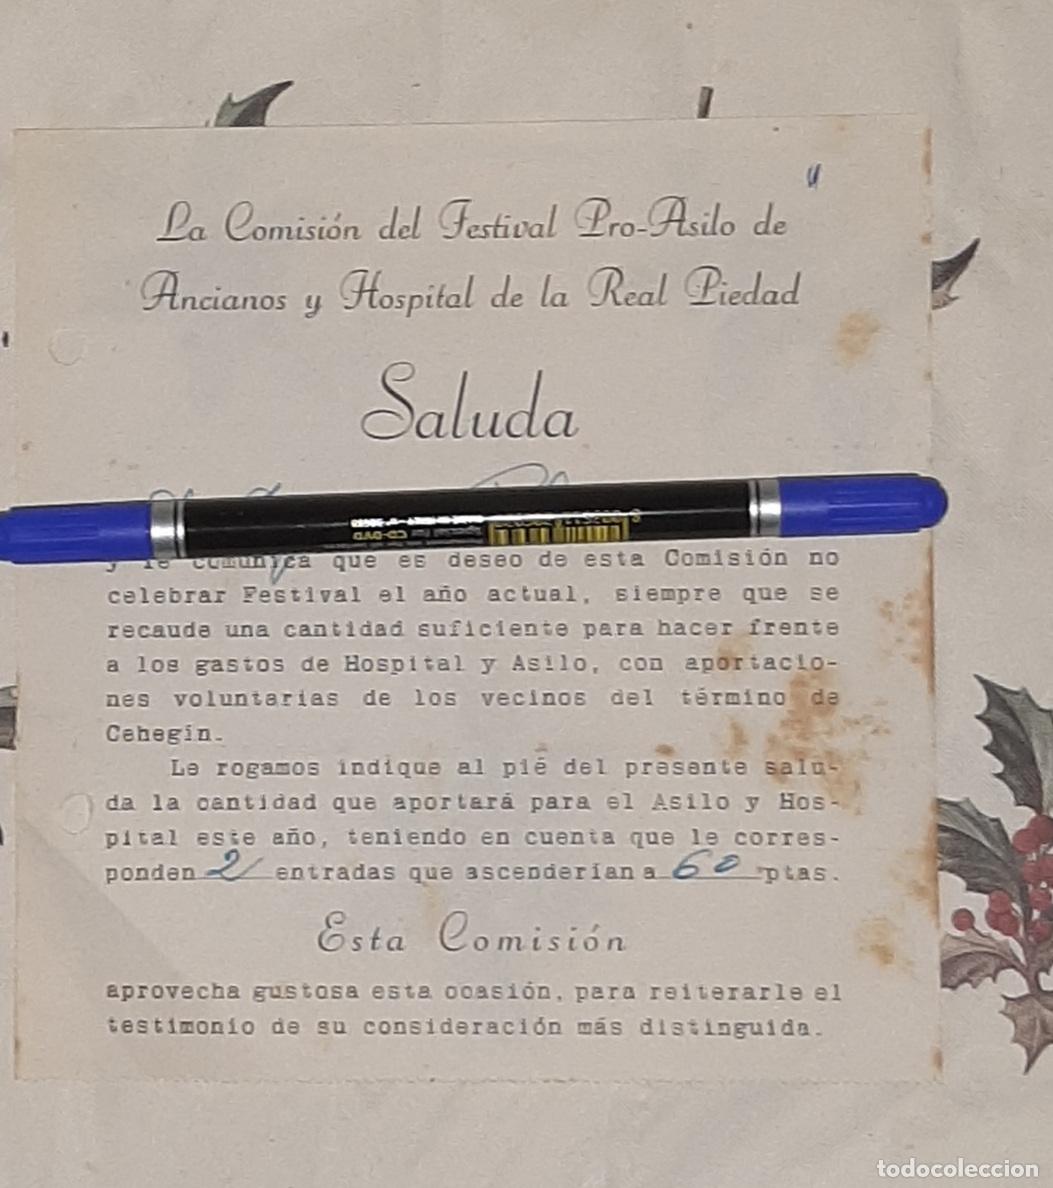 La Comisión del Festival Pro-Asilo de
Ancianos y Hospital de la Real Piedad
Saluda
y le comunica que es deseo de esta Comisión no
celebrar Festival el año actual, siempre que se
recaude una cantidad suficiente para hacer frente
a los gastos de Hospital y Asilo, con aportacio-
nes voluntarias de los vecinos del término de
Cehegín.
Le rogamos indique al pié del presente salu-
da la cantidad que aportará para el Asilo y Hos-
pital este año, teniendo en cuenta que le corres-
ponden 2 entradas que ascenderían a 60 ptas.
Esta Comisión
aprovecha gustosa esta ocasión, para reiterarle el
testimonio de su consideración más distinguida.
CD-DVD
todocoleccion